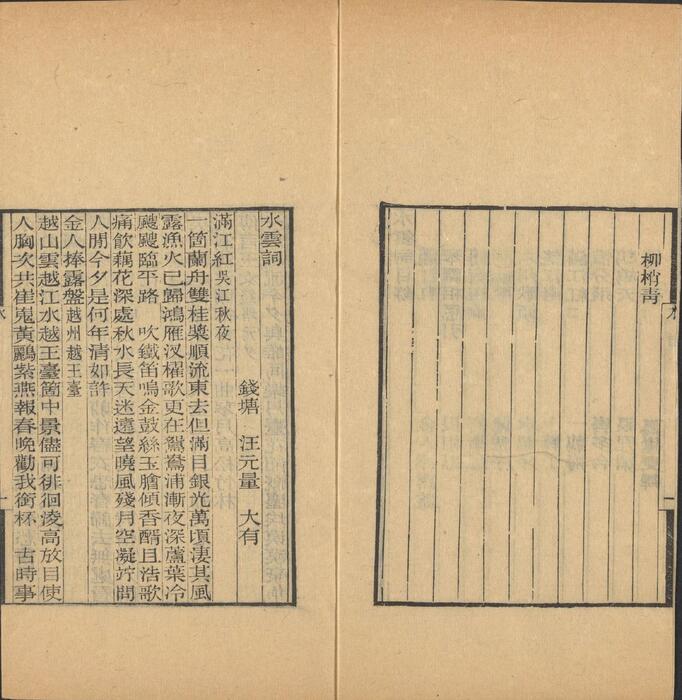 柳梢青
一
水雲詞
錢塘 汪元量 大有
滿江紅 吳江秋夜
一箇蘭舟雙桂槳順流東去但滿目銀光萬頃淒其風
露漁火已歸鴻雁汊櫂歌更在鴛鴦浦漸夜深蘆葉冷
颼颼臨平路 吹鐵笛鳴金鼓絲玉膾傾香醑且浩歌
痛飲藕花深處秋水長天迷遠望曉風殘月空凝竚問
人閒今夕是何年清如許
金人捧露盤 越州越王臺
越山雲越江水越王臺箇中景儘可徘徊淩高放目使
人胸次共崔嵬黃鸝紫燕報春晚勸我銜杯 古時事
一